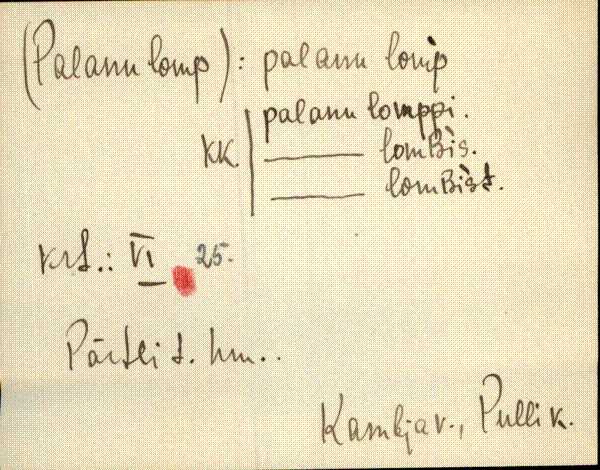 (Palanu lomp): palanu lomp̀
palanu lomppi.
KK. ——— lomBìs.
——— lomBìst.
Krt.: VI 25.
Pärtli t. hm..
Kambja v., Pulli k.